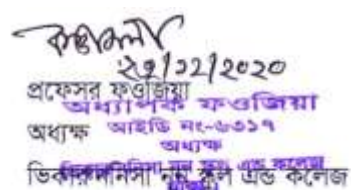 ২৯/১২/২০২০
প্রফেসর ফওজিয়া
অধ্যাপক ফওজিয়া
অধ্যক্ষ
আইডি নং-৬৩১৭
অধ্যক্ষ
ভিকারুননিসা নূন স্কুল এন্ড কলেজ
ভিকারুননিসা নূন স্কুল এন্ড কলেজ